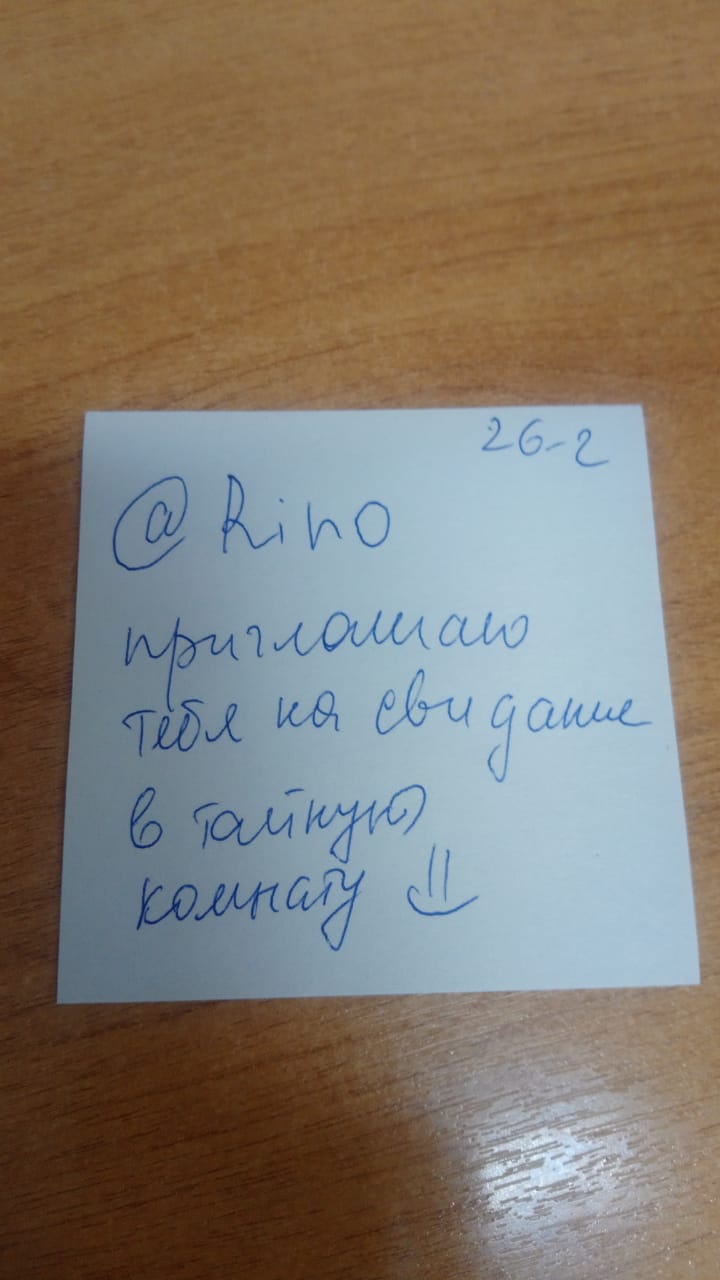 26-2
@Rino
приглашаю
тебя на свидание
в тайную
комнату